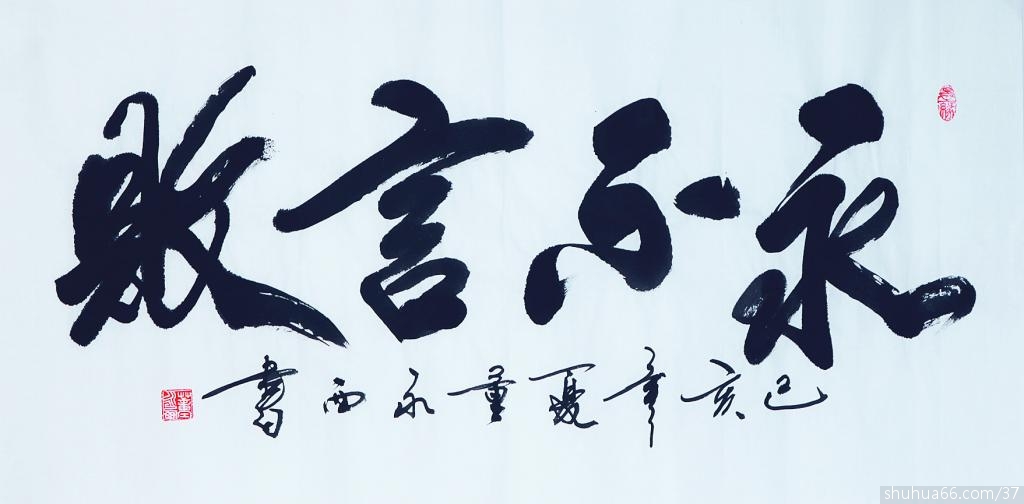 永不言败
己亥年夏董永西書
shuhua66.com/37